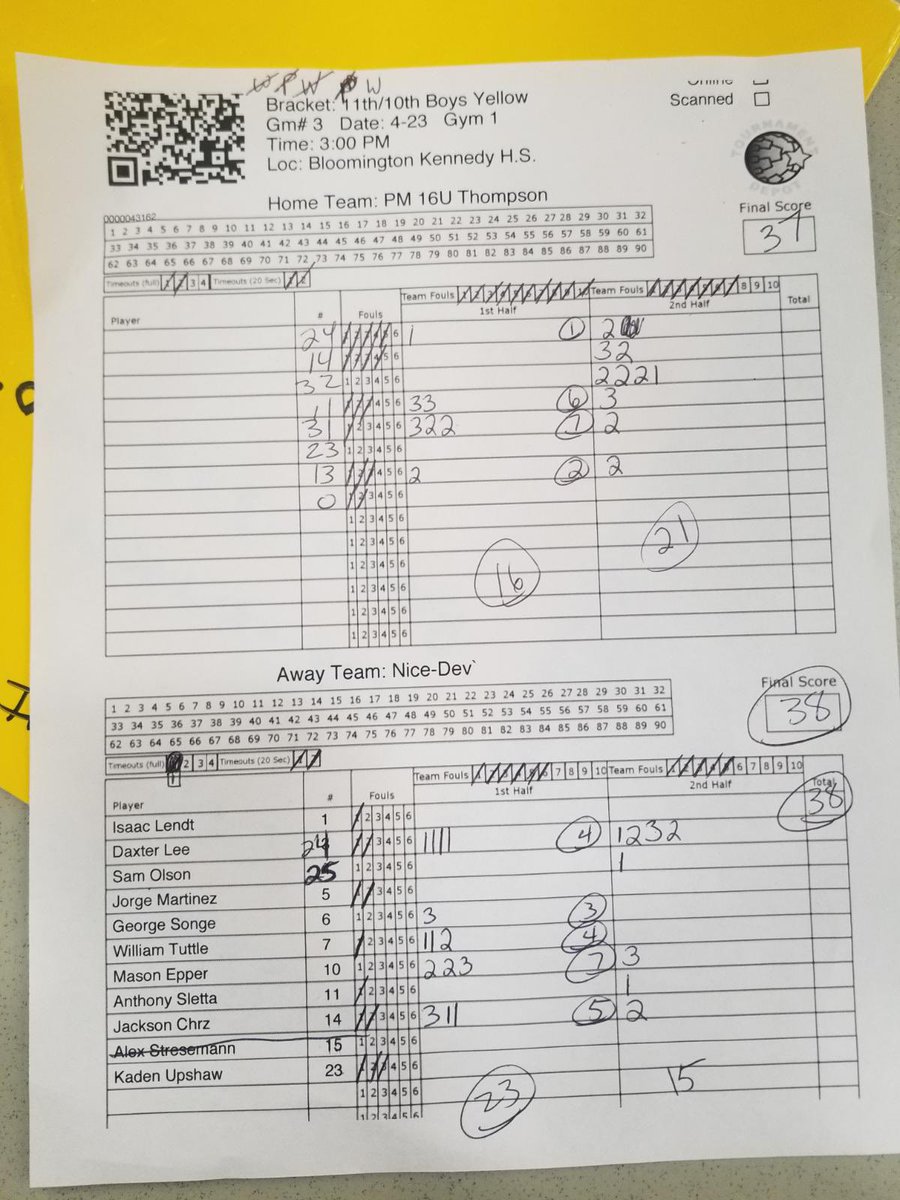 W P W P W
Online
Bracket: 11th/10th Boys Yellow
Scanned
Gm# 3 Date: 4-23 Gym 1
Time: 3:00 PM
Loc: Bloomington Kennedy H.S.
TOURNAMENT DEPOT
Home Team: PM 16U Thompson
Final Score
37
0000043162
1 2 3 4 5 6 7 8 9 10 11 12 13 14 15 16 17 18 19 20 21 22 23 24 25 26 27 28 29 30 31 32
33 34 35 36 37 38 39 40 41 42 43 44 45 46 47 48 49 50 51 52 53 54 55 56 57 58 59 60 61
62 63 64 65 66 67 68 69 70 71 72 73 74 75 76 77 78 79 80 81 82 83 84 85 86 87 88 89 90
Timeouts (full) 1 2 3 4 Timeouts (20 Sec) 1 2
Team Fouls 1 2 3 4 5 6 7 8 9 10 Team Fouls 1 2 3 4 5 6 7 8 9 10
Player # Fouls 1st Half 2nd Half Total
24 1 2 3 4 5 6 1 1 2
14 1 2 3 4 5 6 32
32 1 2 3 4 5 6 2221
11 1 2 3 4 5 6 33 6 3
31 1 2 3 4 5 6 322 7 2
23 1 2 3 4 5 6
13 1 2 3 4 5 6 2 2 2
0 1 2 3 4 5 6
1 2 3 4 5 6
1 2 3 4 5 6
1 2 3 4 5 6
1 2 3 4 5 6
1 2 3 4 5 6
1 2 3 4 5 6
16 21
Away Team: Nice-Dev`
Final Score
38
1 2 3 4 5 6 7 8 9 10 11 12 13 14 15 16 17 18 19 20 21 22 23 24 25 26 27 28 29 30 31 32
33 34 35 36 37 38 39 40 41 42 43 44 45 46 47 48 49 50 51 52 53 54 55 56 57 58 59 60 61
62 63 64 65 66 67 68 69 70 71 72 73 74 75 76 77 78 79 80 81 82 83 84 85 86 87 88 89 90
Timeouts (full) 2 3 4 Timeouts (20 Sec) 1 2
1
Team Fouls 1 2 3 4 5 6 7 8 9 10 Team Fouls 1 2 3 4 5 6 7 8 9 10
Player # Fouls 1st Half 2nd Half Total
38
Isaac Lendt 1 1 2 3 4 5 6
Daxter Lee 24 1 2 3 4 5 6 1111 4 1232
Sam Olson 25 1 2 3 4 5 6 1
Jorge Martinez 5 1 2 3 4 5 6
George Songe 6 1 2 3 4 5 6 3 3
William Tuttle 7 1 2 3 4 5 6 112 4
Mason Epper 10 1 2 3 4 5 6 223 7 3
Anthony Sletta 11 1 2 3 4 5 6 1
Jackson Chrz 14 1 2 3 4 5 6 311 5 2
Alex Stresemann 15 1 2 3 4 5 6
Kaden Upshaw 23 1 2 3 4 5 6
1 2 3 4 5 6
1 2 3 4 5 6
23 15